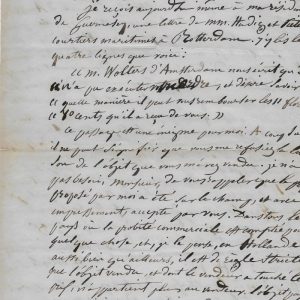 je reçois aujourd'hui même à ma résidence
de Guernesey une lettre de MM. Hudig et
courtiers maritimes à Rotterdam. J'y lis
quatre lignes que voici:
« M. Wolters d'Amsterdam nous écrit qu'il
n'a pu exécuter ordre, et désire savoir
de quelle manière il peut nous rembourser les 11 flor
cents qu'il a reçu de vous. »
Ce passage est une énigme pour moi. À coup
il ne peut signifier que vous me refusiez la
son de l'objet que vous m'avez vendu. Je n'ai
pas besoin, Monsieur, de vous rappeler que le
proposé par moi a été sur le champ, et avec
empressement, accepté par vous. Dans tous les
pays où la probité commerciale est comptée pour
quelque chose, et, je le pense, en Hollande
aussi bien qu'ailleurs, il est de règle stricte
que l'objet vendu, et dont le vendeur a touché le
prix, n'appartient plus au vendeur.